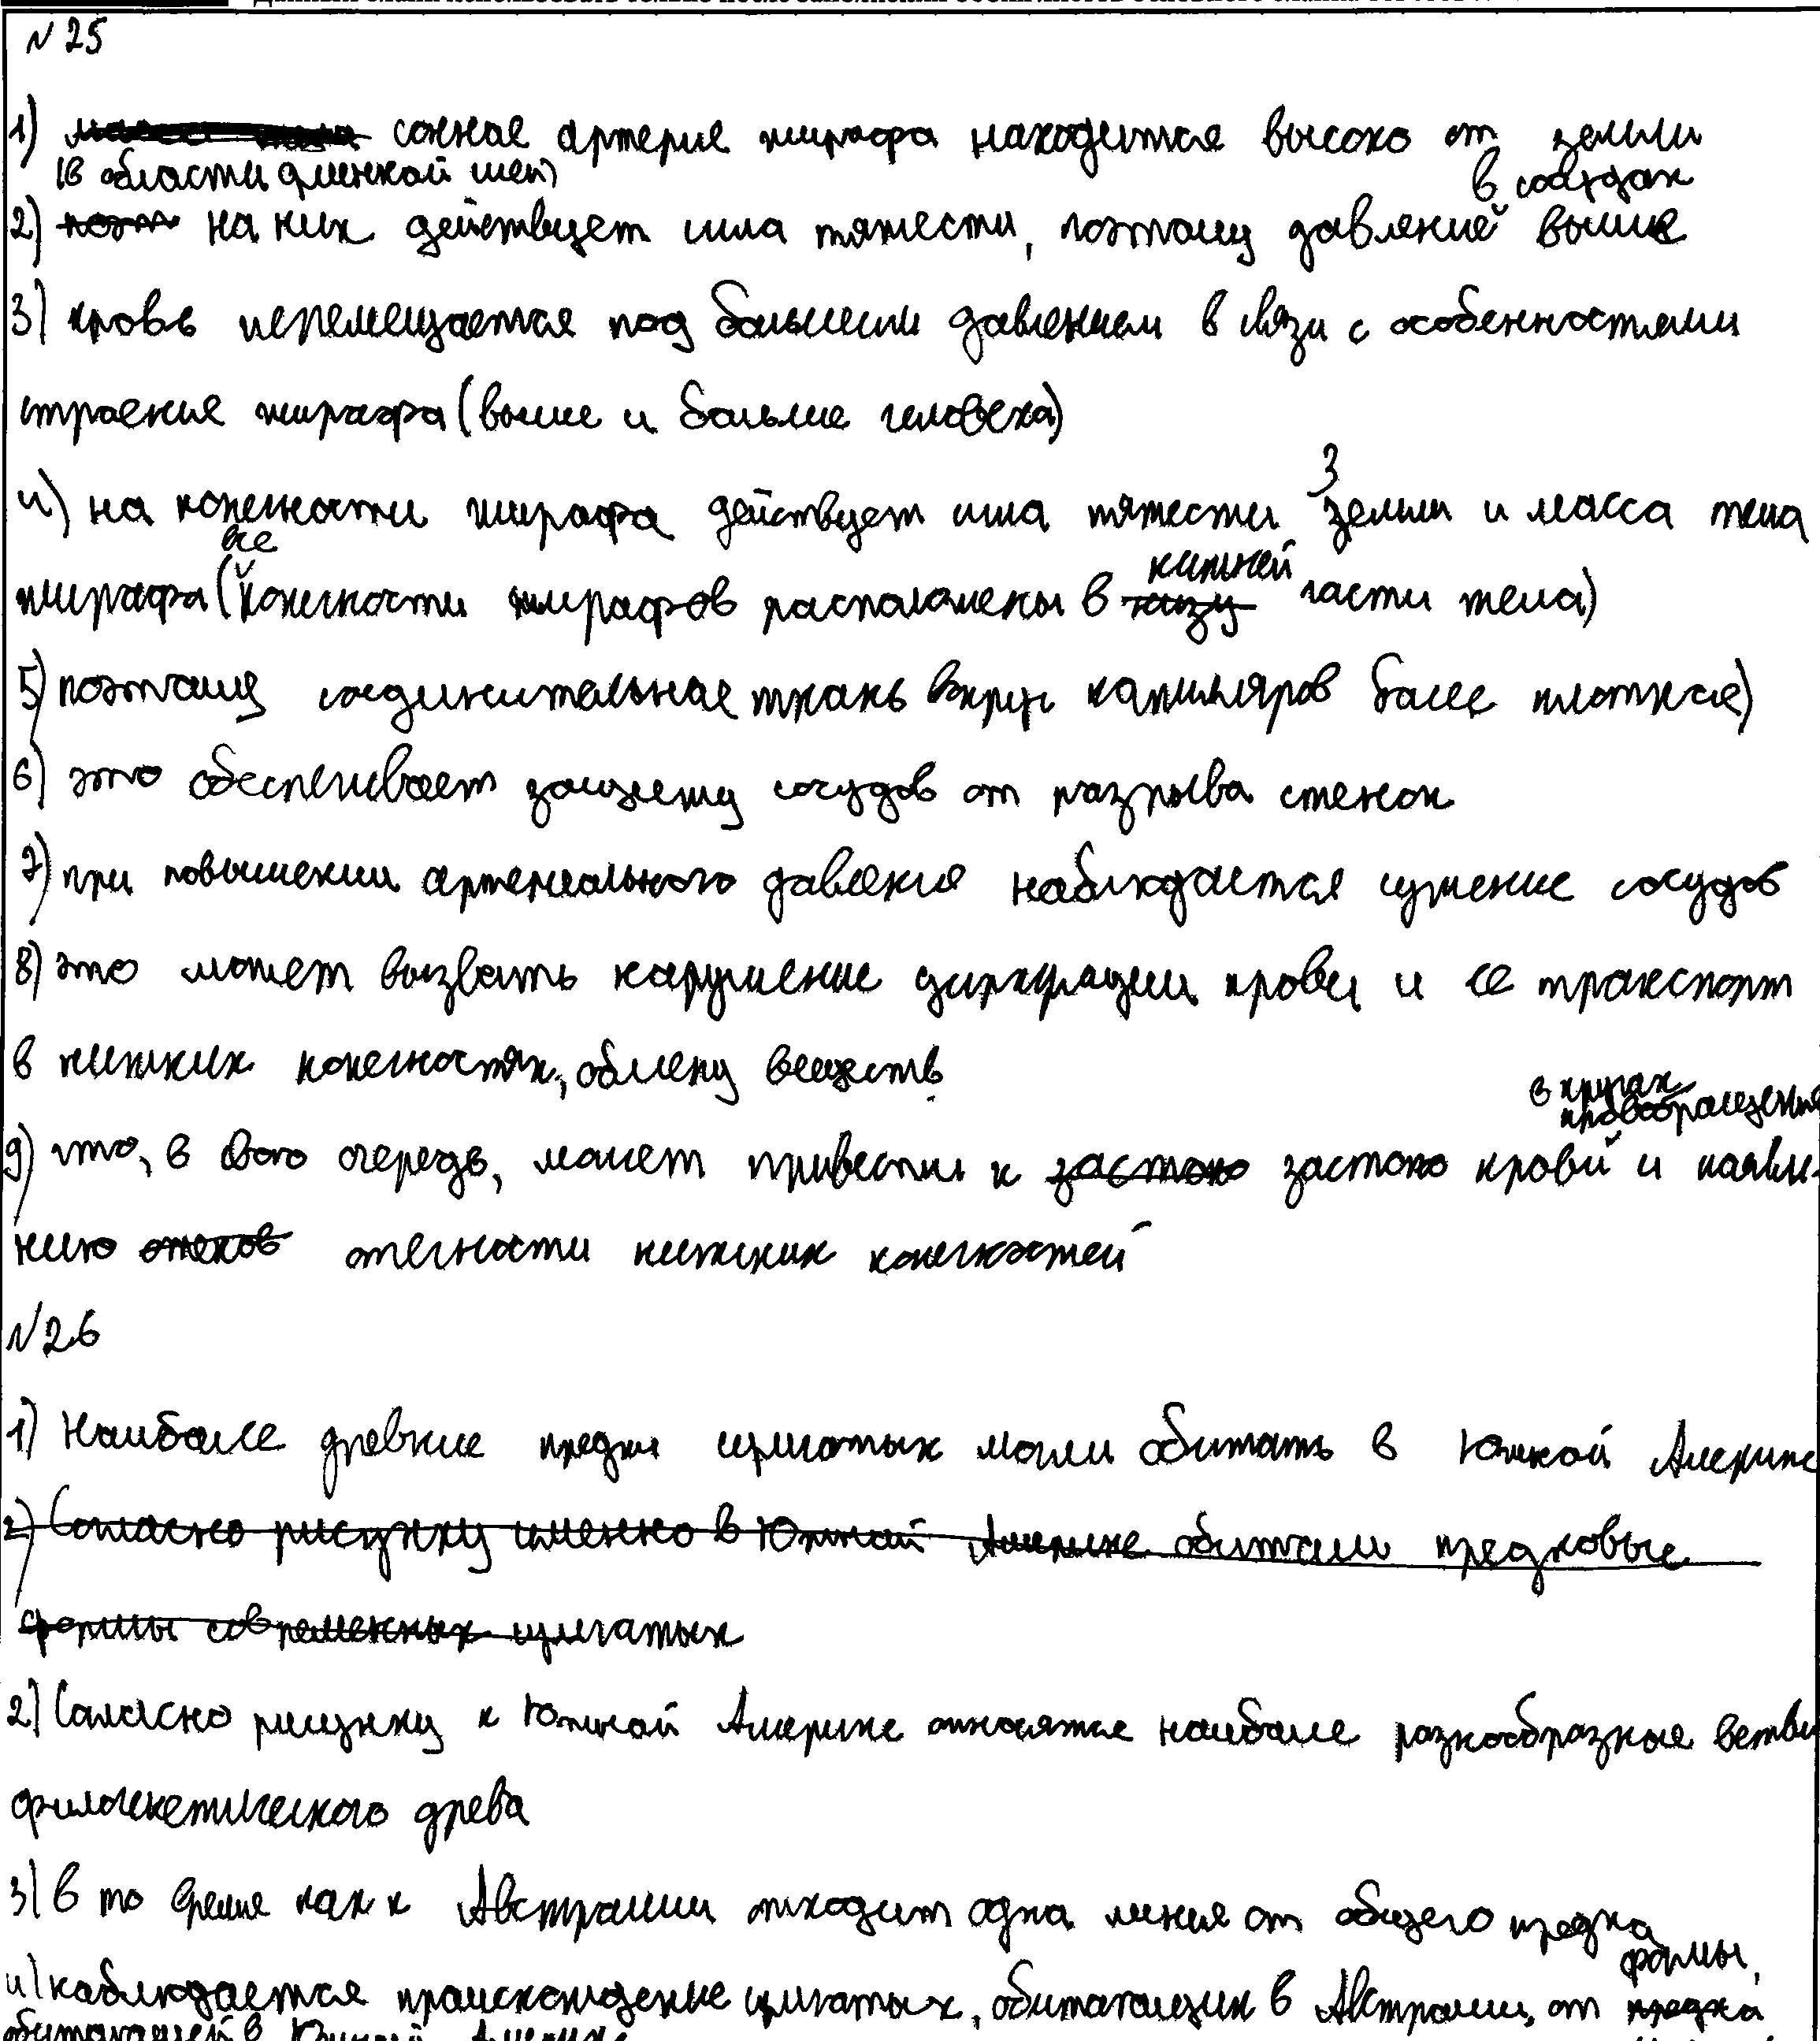 №25
1) сонная артерия жирафа находится высоко от земли
(в области длинной шеи)
2) на них действует сила тяжести, поэтому давление в сосудах выше
3) кровь перемещается под большим давлением в связи с особенностями
строения жирафа (выше и больше человека)
4) на конечности жирафа действует сила тяжести Земли и масса тела
жирафа (все конечности жирафов расположены в нижней части тела)
5) поэтому соединительная ткань вокруг капилляров более плотная)
6) это обеспечивает защиту сосудов от разрыва стенок
7) при повышении артериального давления наблюдается сужение сосудов
8) это может вызвать нарушение циркуляции крови и её транспорт
в нижних конечностях, обмену веществ.
9) что, в свою очередь, может привести к застою крови в кругах кровообращения и появле-
нию отечности нижних конечностей
№26
1) Наиболее древние предки сумчатых могли обитать в Южной Америке
2) Согласно рисунку именно в Южной Америке обитали предковые
формы современных сумчатых
2) Согласно рисунку к Южной Америке относятся наиболее разнообразные ветви
филогенетического древа
3) в то время как к Австралии отходит одна линия от общего предка
4) наблюдается происхождение сумчатых, обитающих в Австралии, от формы,
обитающей в Южной Америке